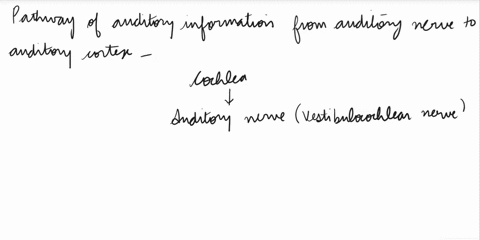 Pathway of auditory information from auditory nerve to
auditory cortex -
Cochlea
↓
Auditory nerve (Vestibulocochlear nerve)